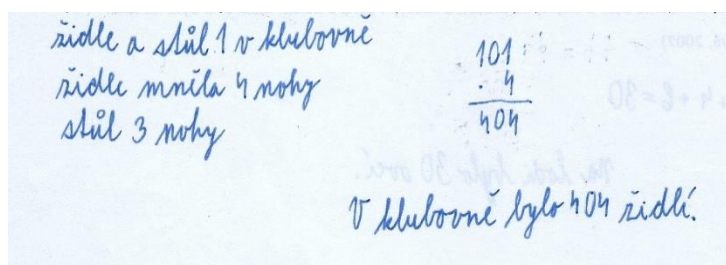 židle a stůl 1 v klubovně
židle mněla 4 nohy
stůl 3 nohy
101
. 4
404
V klubovně bylo 404 židlí.